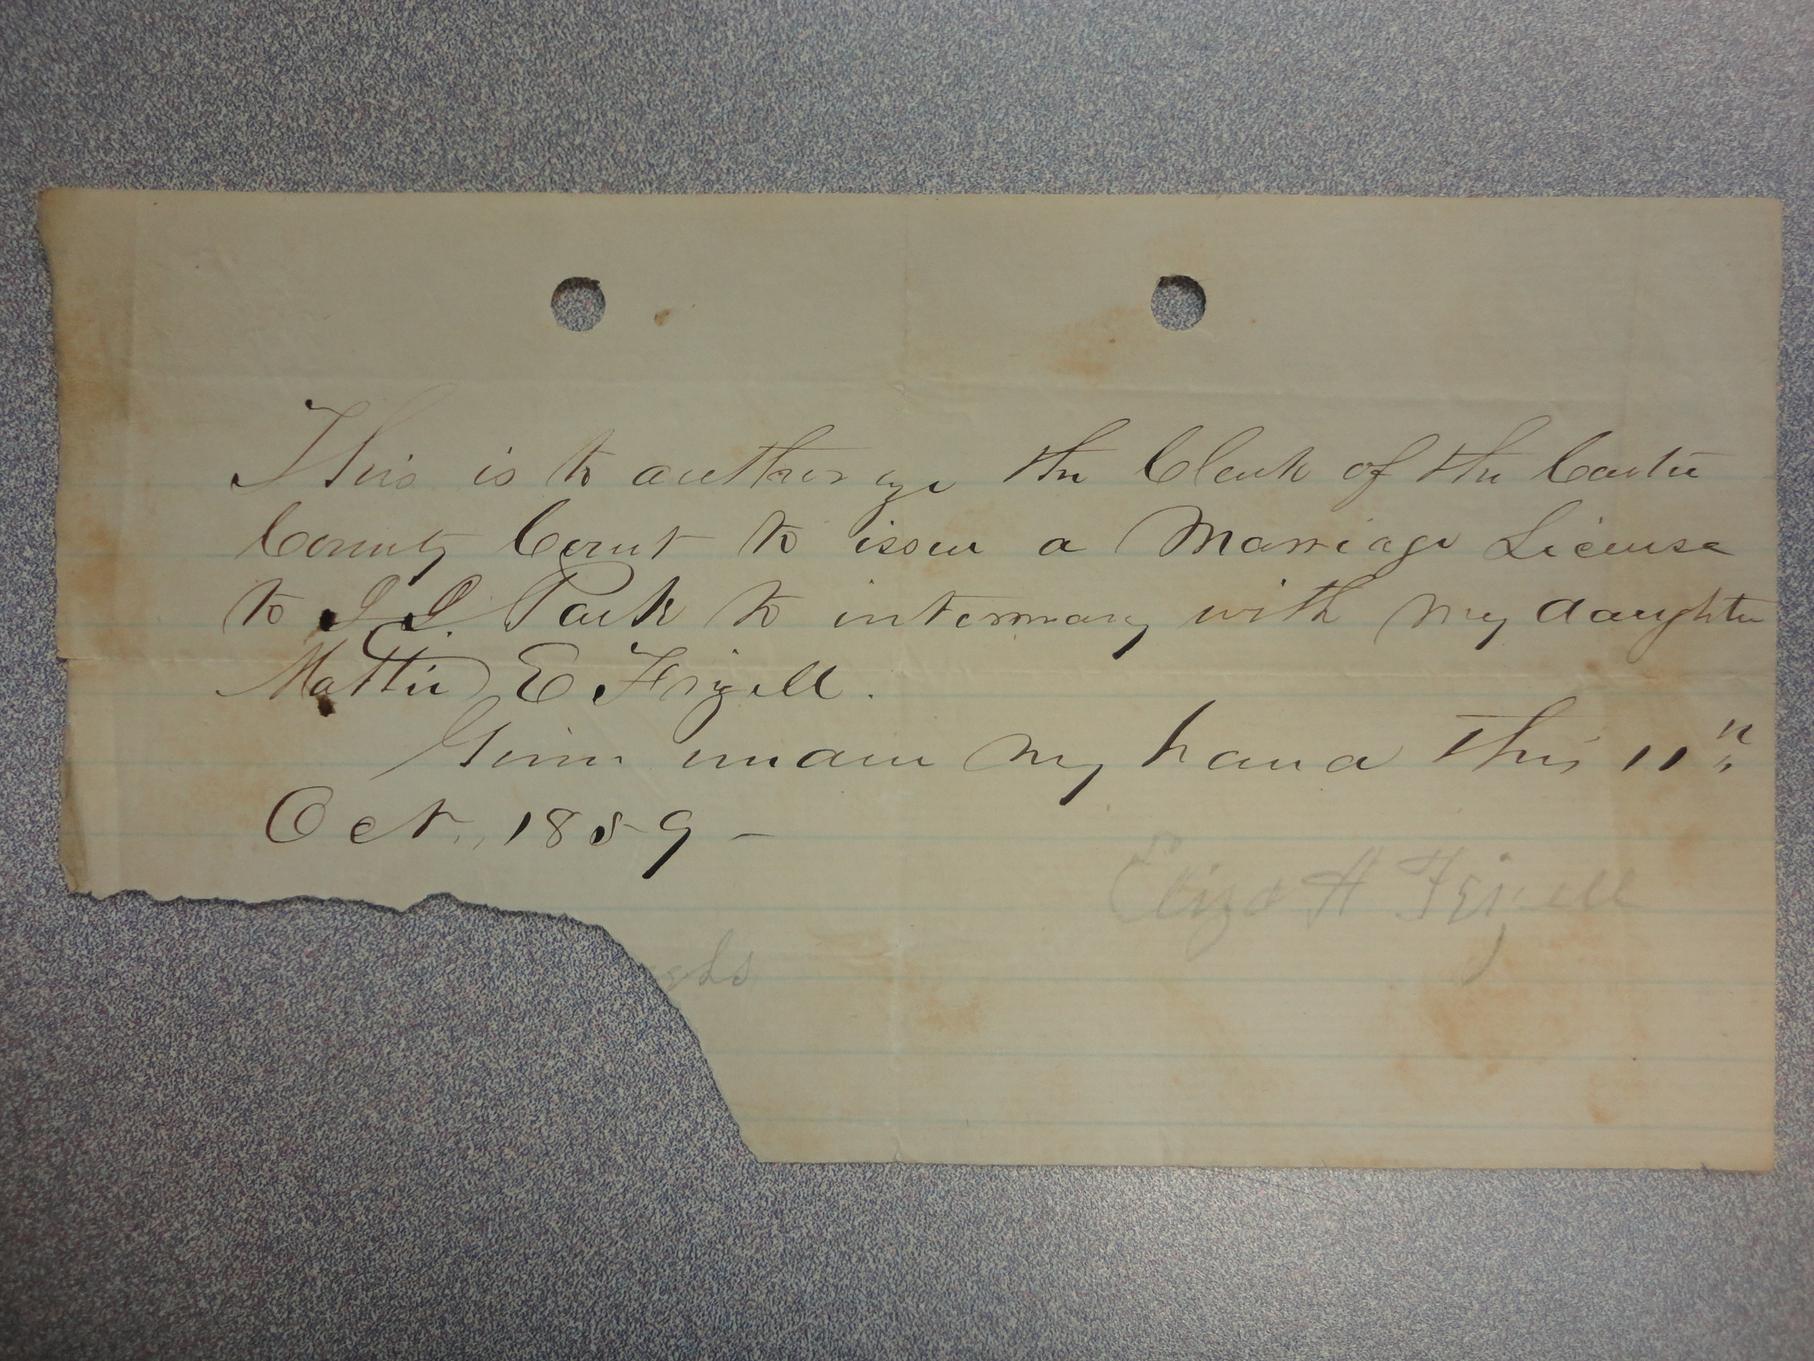 This is to authorize the Clerk of the Carter
County Court to issue a Marriage License
to J. J. Park to intermary with my daughter
Mattie E Frizell.
Given under my hand this 11th
Oct, 1889 -
Eliza H Frizell